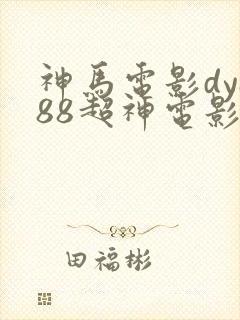 神馬電影dy
88超神電影
田福彬